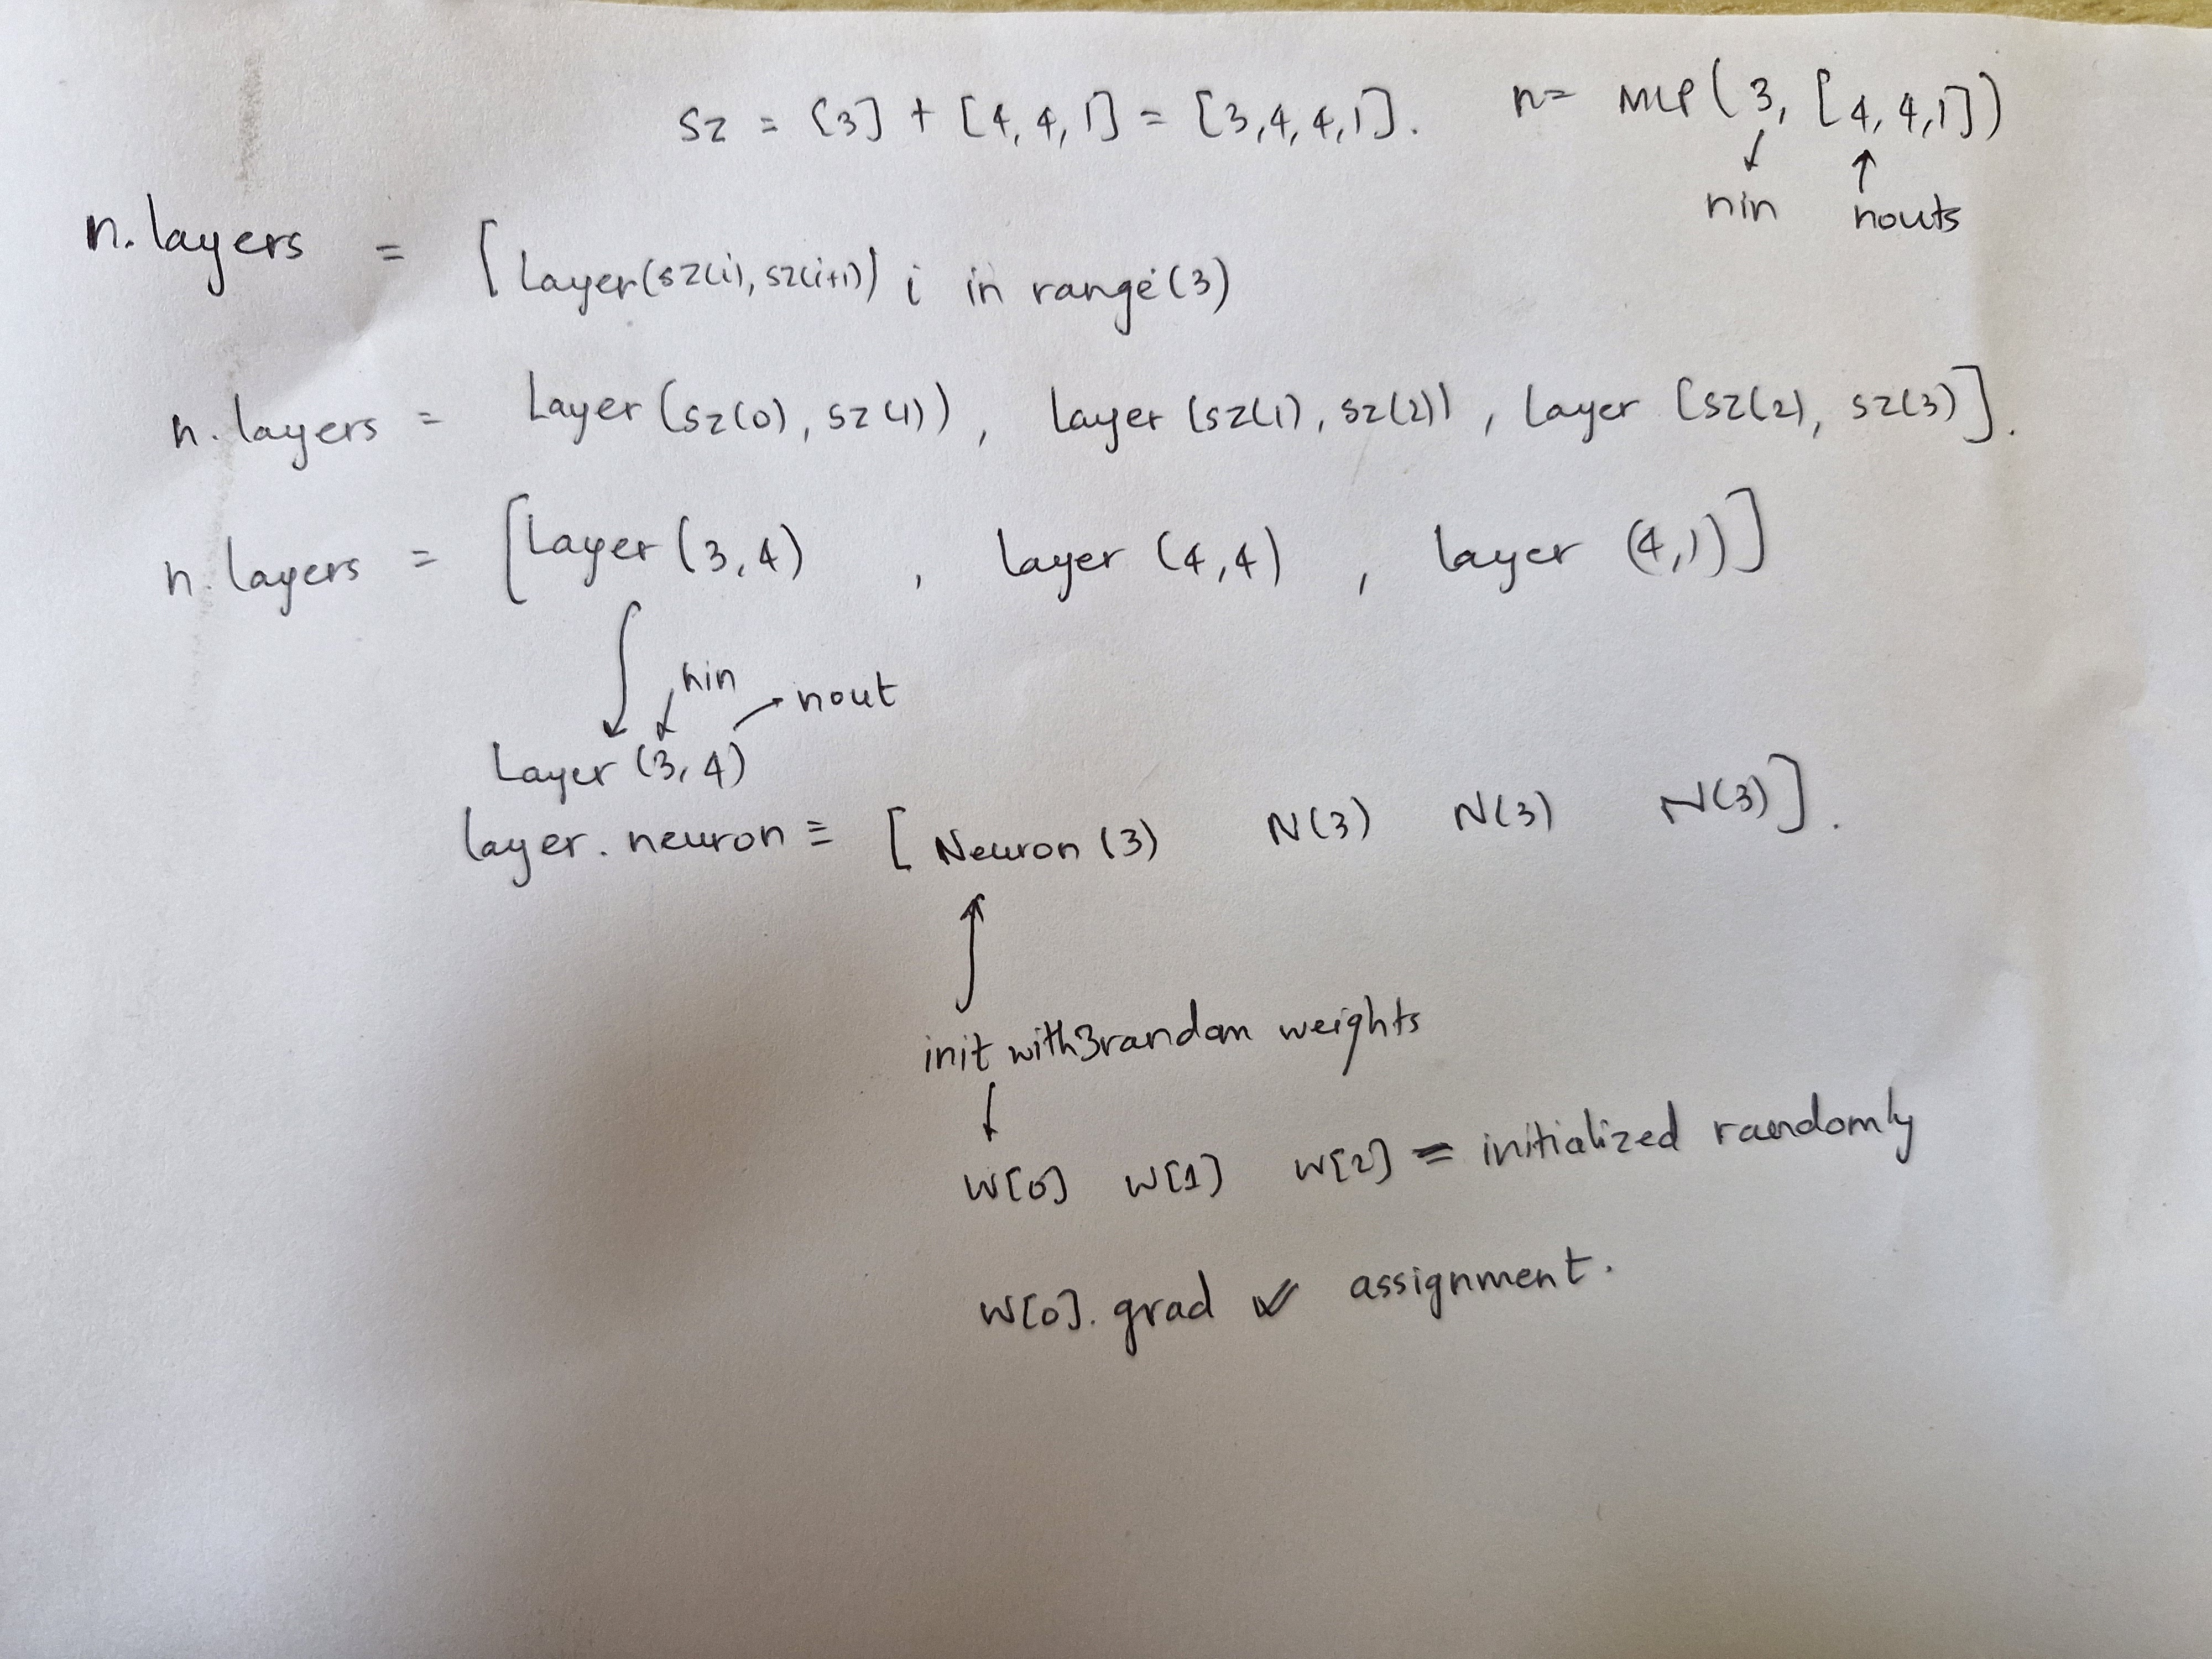 sz = [3] + [4, 4, 1] = [3,4,4,1]. n= MLP(3, [4, 4,1])
nin nouts
n. layers = [Layer(sz(i), sz(i+1)) i in range(3)
n. layers = Layer (sz(0), sz(1)), layer (sz(1), sz(2)), layer [sz(2), sz(3)].
n. layers = [Layer (3,4) , layer (4,4) , layer (4,1)]
nin nout
Layer (3,4)
layer. neuron = [Neuron (3) N(3) N(3) N(3)].
init with 3 random weights
w[0] w[1] w[2] = initialized randomly
w[0]. grad assignment.